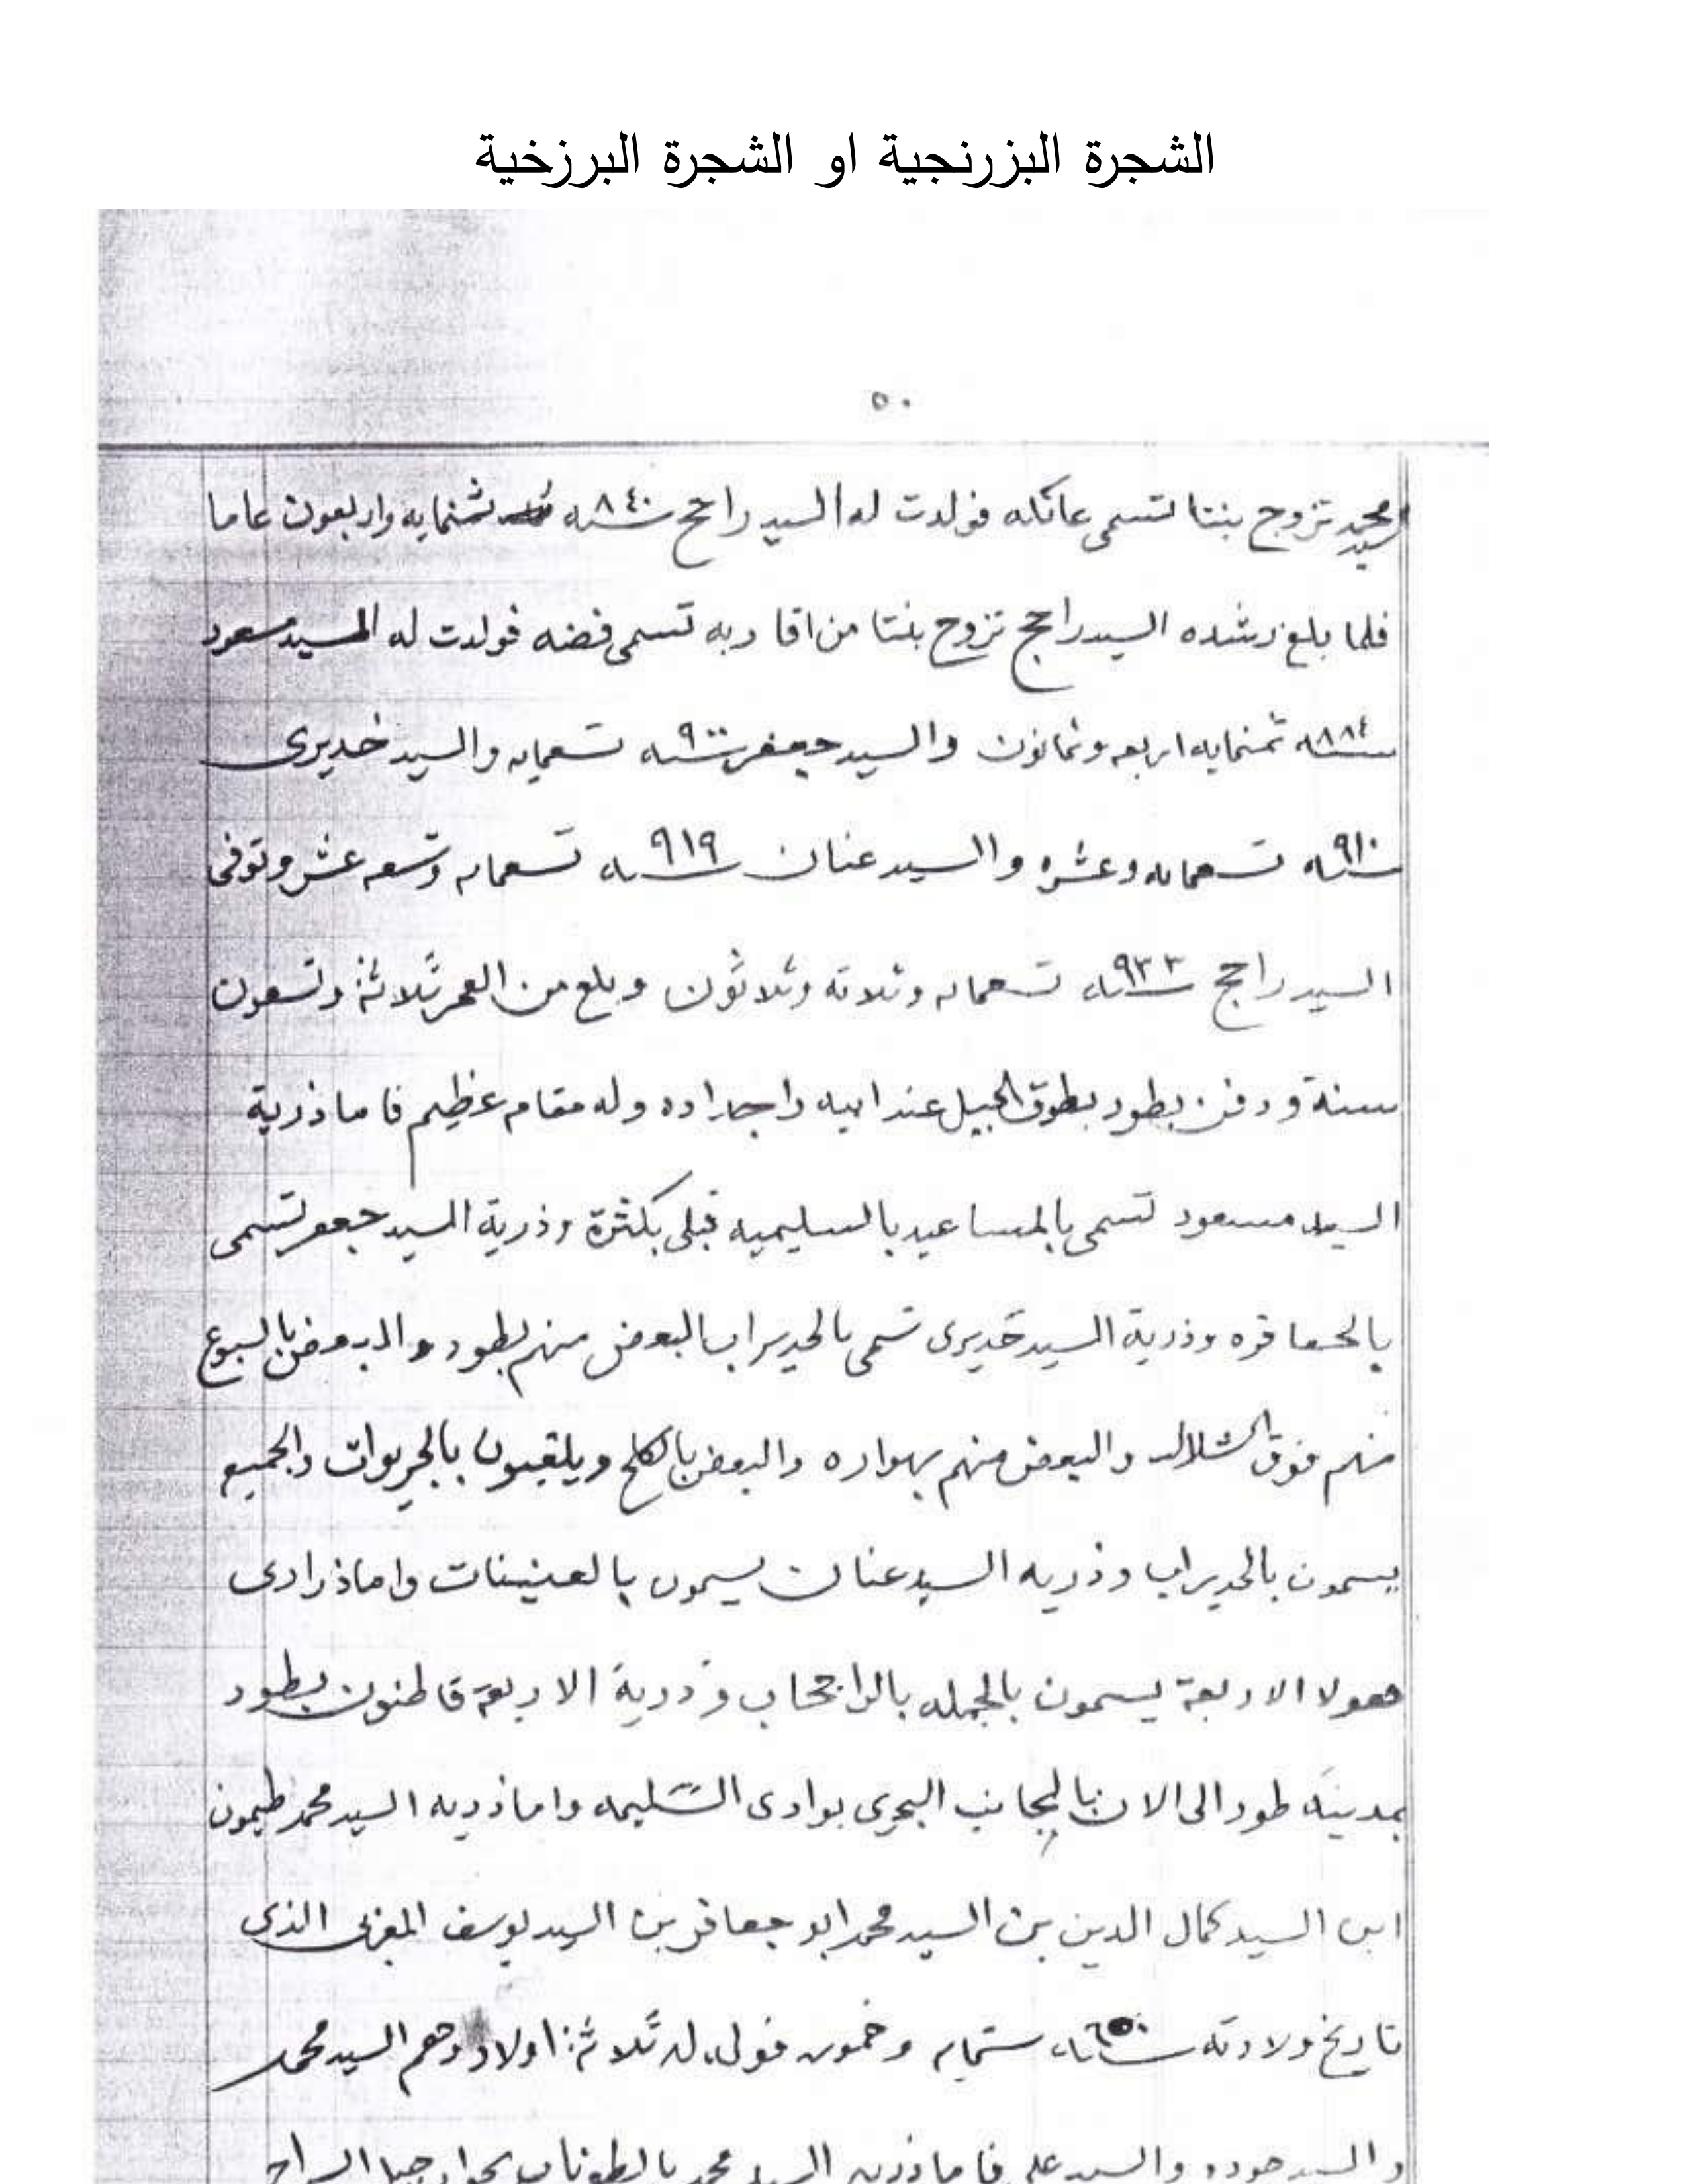 الشجرة البزرنجية او الشجرة البرزخية
٥٠
السيد محمد تزوج بنتا تسمى عاتكه فولدت له السيد راجح سنة ٨٤٠ ثمنمايه واربعون عاما
فلما بلغ رشده السيد راجح تزوج بنتا من اقاربه تسمى فضه فولدت له السيد مسعود
سنة ٨٨٤ ثمنمايه اربعه وثمانون والسيد جعفر سنة ٩٠٠ تسعمايه والسيد خديرى
سنة ٩١٠ تسعمايه وعشره والسيد عنان سنة ٩١٩ تسعمايه وتسعه عشر وتوفى
السيد راجح سنة ٩٣٣ تسعمايه وثلاثه وثلاثون وبلغ من العمر ثلاثة وتسعون
سنة ودفن بطود بطوق الجبل عند ابيه واجداده وله مقام عظيم فاما ذرية
السيد مسعود تسمى بالمساعيد بالسليميه قبلى بكثرة وذرية السيد جعفر تسمى
بالجعافره وذرية السيد خديرى تسمى بالخديراب البعض منهم بطود والبعض بالسبوع
منهم فوق الشلال والبعض منهم بهواره والبعض بالكلح ويلقبون والجميع
يسمون بالخديراب وذريه السيد عنان يسمون بالعنينات واما ذرارى
هولا الاربعة يسمون بالجمله بالراجحاب وذرية الاربعة قاطنون بطود
بمدينة طود الى الان بالجانب البحرى بوادى السليمه واما ذريه السيد محمد طيمون
ابن السيد كمال الدين بن السيد محمد ابو جعافر بن السيد يوسف المغربى الذى
تاريخ ولادته سنة ٦٥٠ ستمايه وخمسون فولد له ثلاثة اولاد وهم السيد محمد
والسيد حوده والسيد على فاما ذريه السيد محمد بجوار جبل السراج